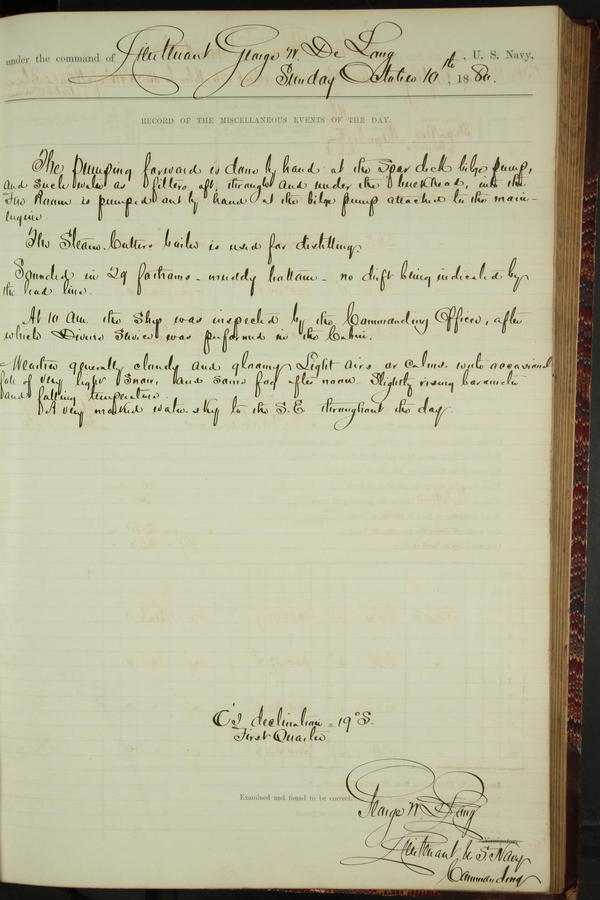 under the command of Lieutenant George W. De Long, U. S. Navy,
Sunday October 10th, 1880.
RECORD OF THE MISCELLANEOUS EVENTS OF THE DAY.
The pumping forward is done by hand at the spar deck bilge pump,
and such water as filters aft, through and under the bulkhead, into the
Fire Room is pumped out by hand at the bilge pump attached to the main-
engine.
The Steam Cutters boiler is used for distilling.
Sounded in 29 fathoms - muddy bottom - no drift being indicated by
the lead line.
At 10 A.M. the Ship was inspected by the Commanding Officer, after
which Divine Service was performed in the Cabin.
Weather generally cloudy and gloomy. Light airs or calms with occasional
fall of very light snow, and some fog after noon. Slightly rising barometer
and falling temperature.
A very marked water sky to the S.E. throughout the day.
☾'s declination = 19° S.
First Quarter
Examined and found to be correct.
George W. De Long
Lieutenant U. S. Navy
Commanding